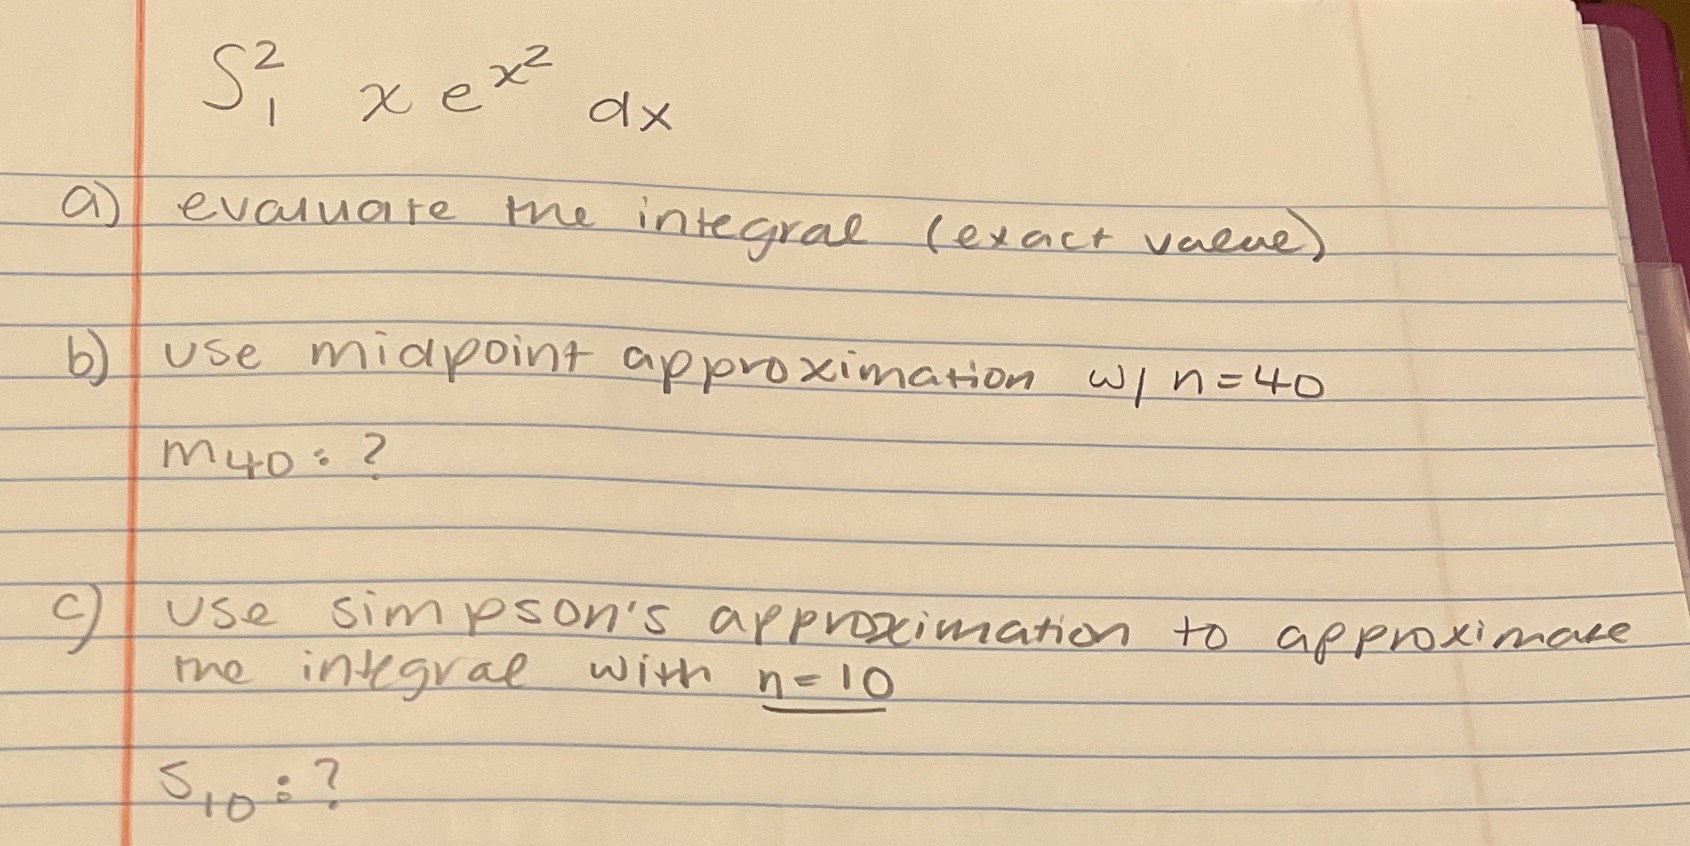 ∫₁² x e^x² dx
a) evaluate the integral (exact value)
b) use midpoint approximation w/ n=40
m₄₀: ?
c) use simpson's approximation to approximate
the integral with n=10
S₁₀: ?